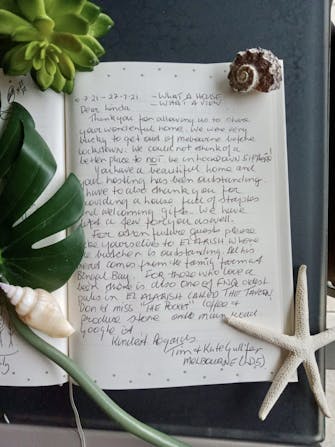 7.21 - 27-7-21 - WHAT A HOUSE
- WHAT A VIEW
Dear Linda,
Thankyou for allowing us to share
your wonderful home. We were very
lucky to get out of melbourne before
lockdown. We could not think of a
better place to NOT be in lockdown
You have a beautiful home and
your hosting has been outstanding
I have to also thank you for
providing a house full of staples
and welcoming gifts. We have
left a few for you as well.
For other future guests please
take yourselves to EL ARISH where
the butcher is outstanding. All his
meat comes from the family farm at
Bingil Bay. FOR THOSE WHO LOVE A
beer there is also one of FNQ oldest
pubs in EL ARISH CALLED THE TAVERN
Don't miss 'THE POCKET' coffee &
produce store onto main road
Google it
Kindest Regards
Tim & Kate
MELBOURNE